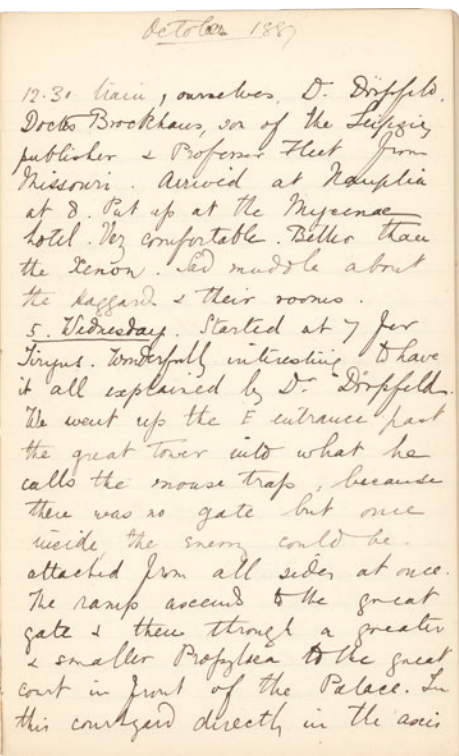 October 1887
12.30 train, ourselves, Dr. Dörpfeld.
Doctor Brockhaus, son of the Leipzig
publisher & Professor Fleet from
Missouri. Arrived at Nauplia
at 8. Put up at the Mycenae
hotel. Very comfortable. Better than
the Xenon. Sad muddle about
the Haggards & their rooms.
5. Wednesday. Started at 7 for
Tiryns. Wonderfully interesting to have
it all explained by Dr. Dörpfeld.
We went up the E entrance past
the great tower into what he
calls the mouse trap, because
there was no gate but once
inside, the enemy could be
attacked from all sides at once.
The ramp ascends to the great
gate & then through a greater
& smaller Propylaea to the great
court in front of the Palace. In
this courtyard directly in the axis